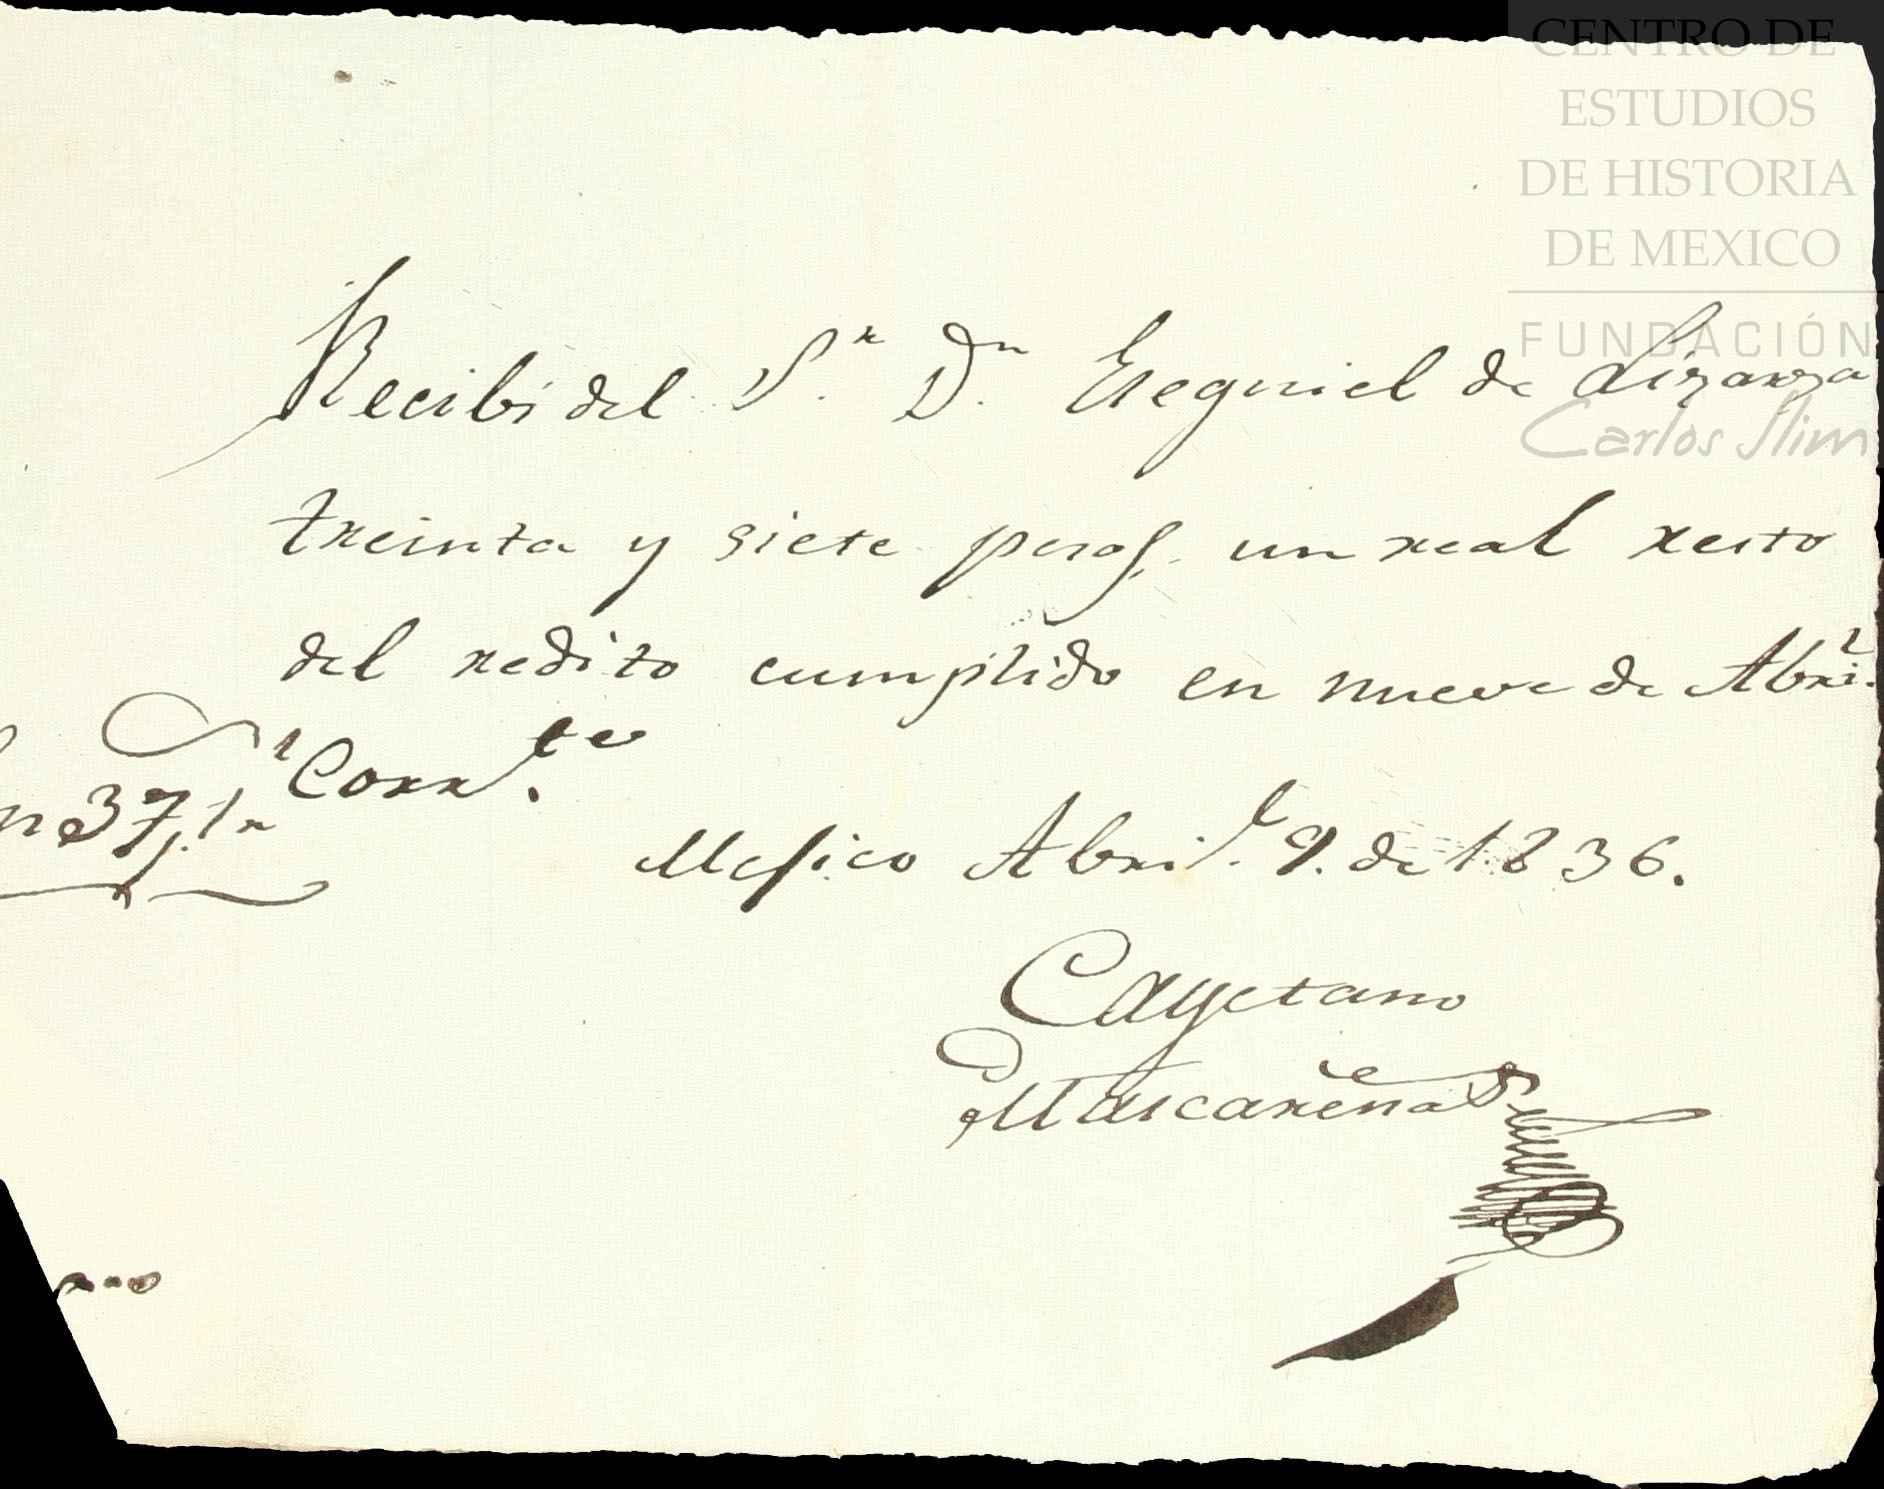 CENTRO DE
ESTUDIOS
DE HISTORIA
DE MEXICO
FUNDACIÓN
Carlos Slim
Recibi del S.r D.n Esequiel de Lizarza
treinta y siete pesos. un real resto
del redito cumplido en nueve de Abril.
Corr.te
n 37,,1r
Mesico Abril. 9. de 1836.
Cayetano
Mascareñas